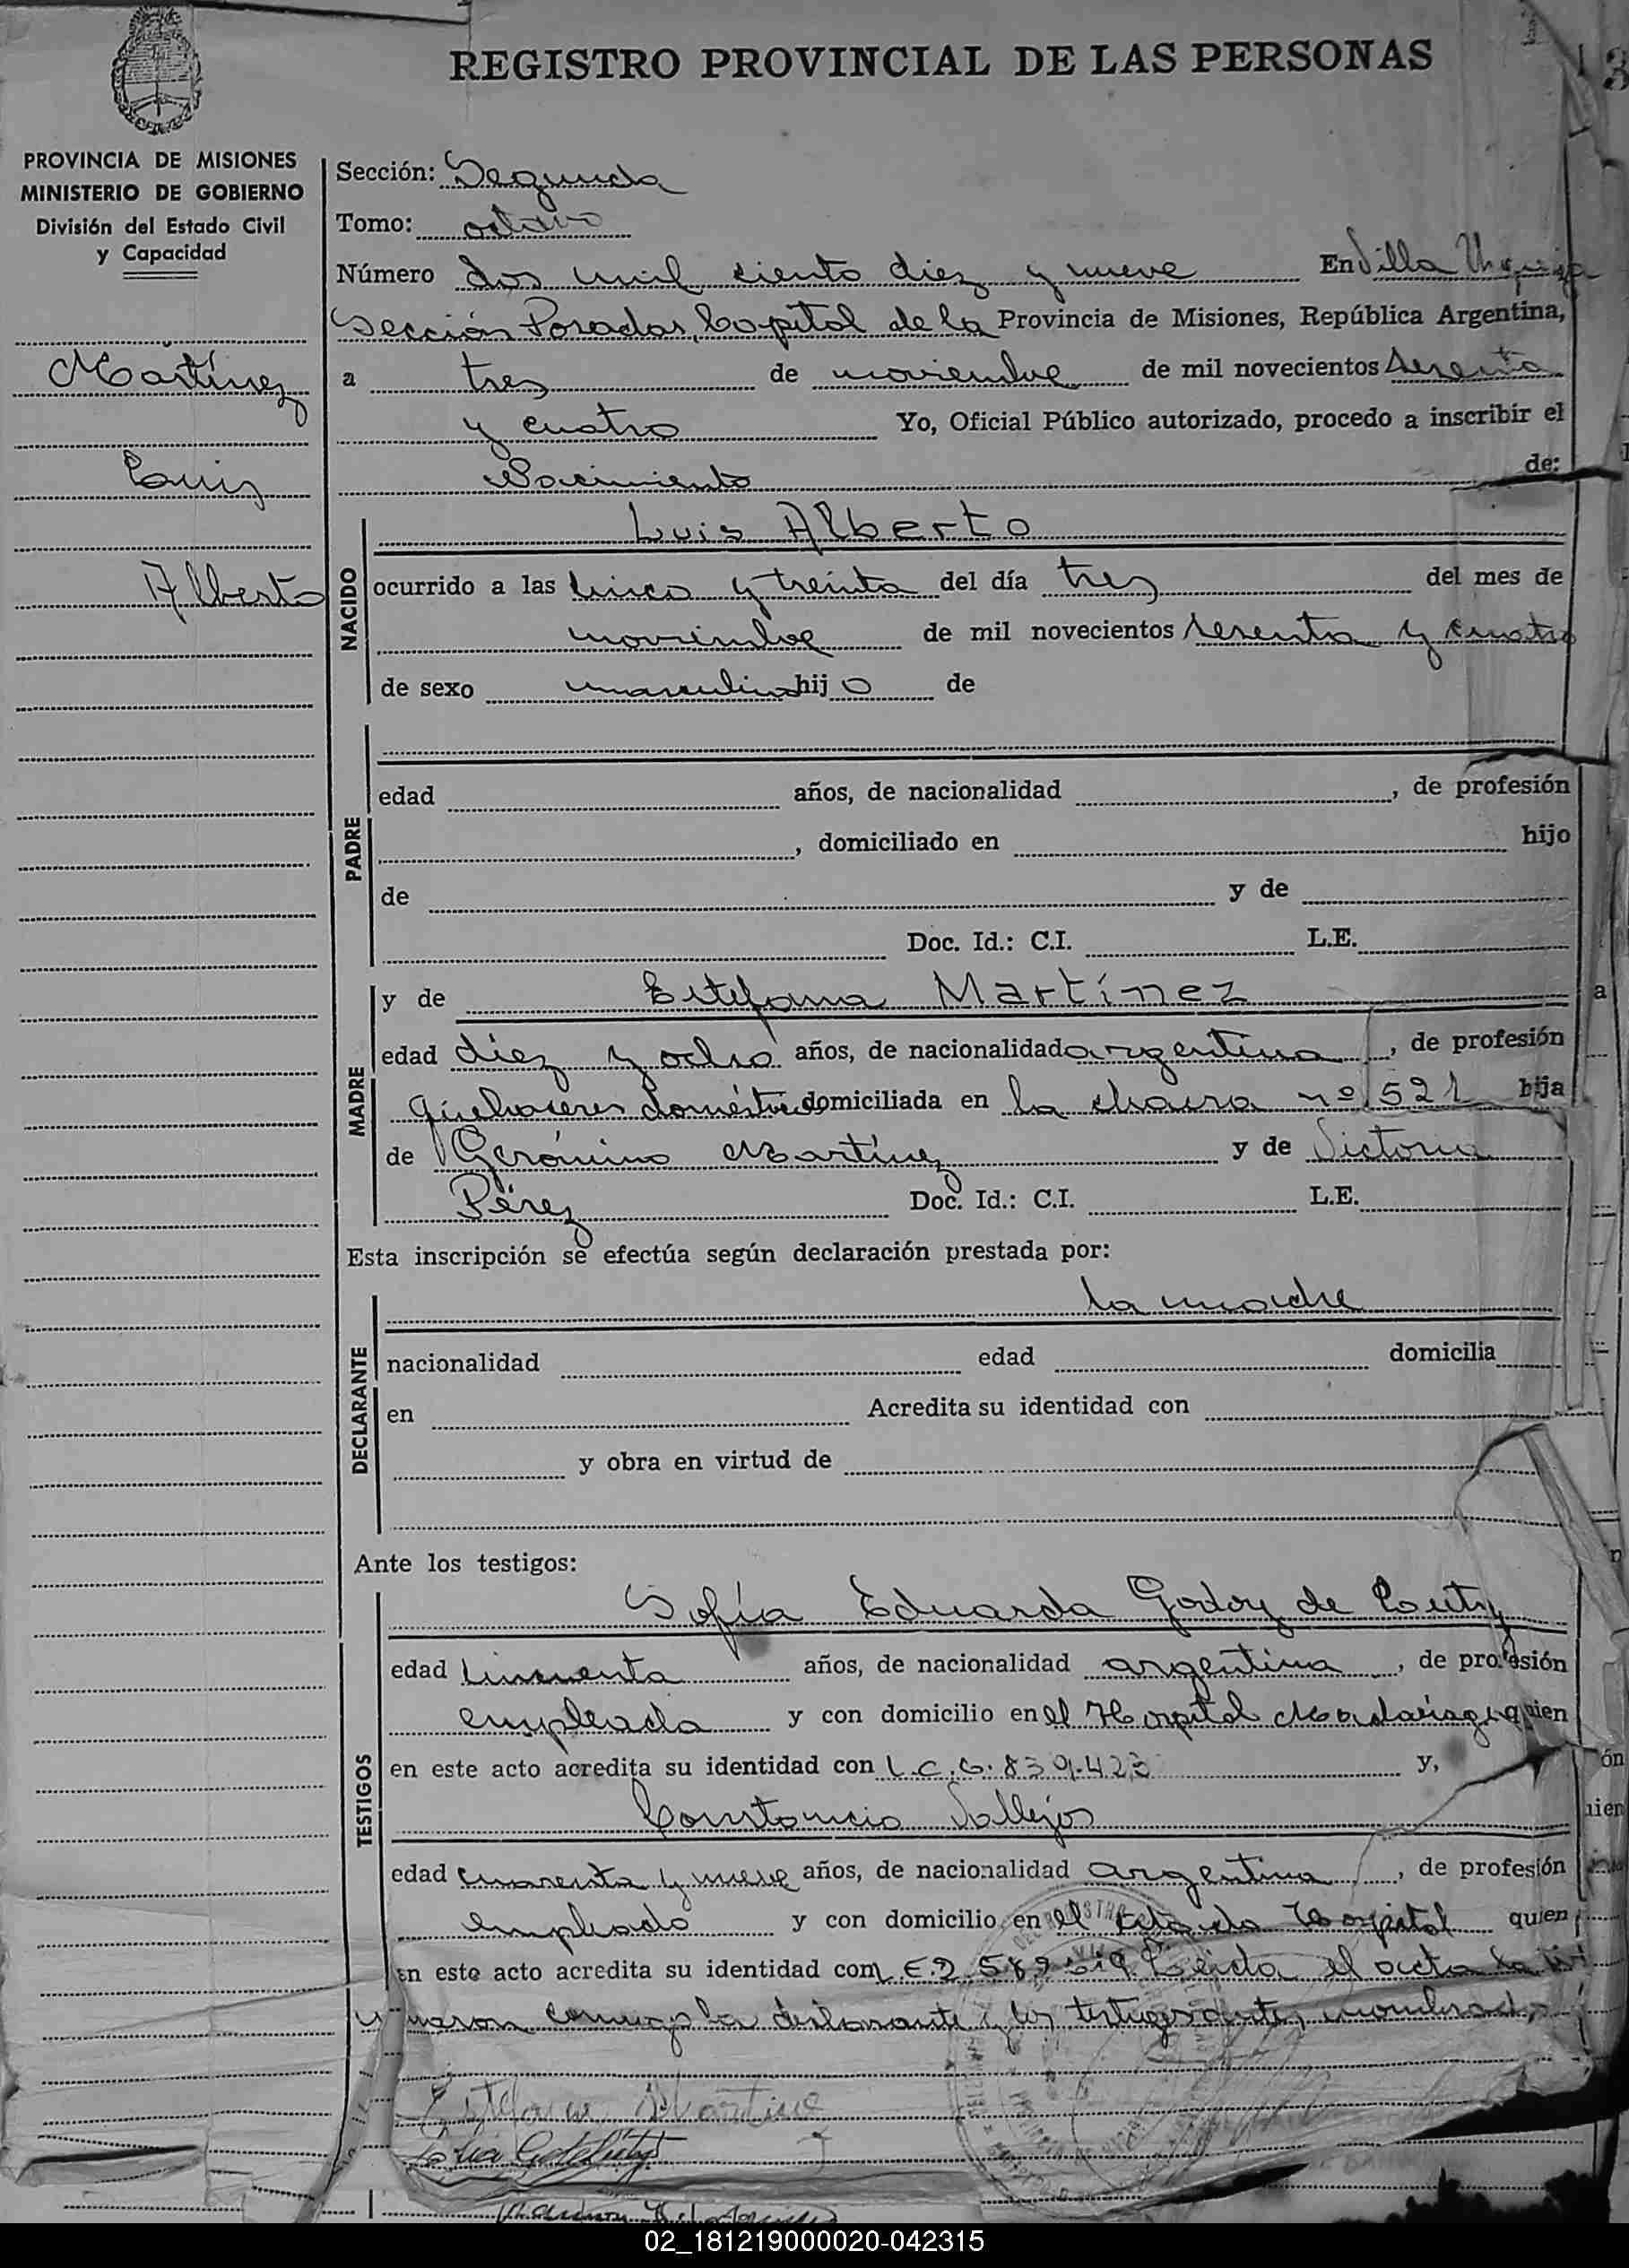 REGISTRO PROVINCIAL DE LAS PERSONAS
PROVINCIA DE MISIONES
MINISTERIO DE GOBIERNO
División del Estado Civil
y Capacidad
Martínez
Luis
Alberto
Sección: Segunda
Tomo: octavo
Número dos mil ciento diez y nueve En Villa Urquiza
Sección Posadas, Capital de la Provincia de Misiones, República Argentina,
a tres de noviembre de mil novecientos sesenta
y cuatro Yo, Oficial Público autorizado, procedo a inscribir el
Nacimiento de:
NACIDO
Luis Alberto
ocurrido a las cinco y treinta del día tres del mes de
noviembre de mil novecientos sesenta y cuatro
de sexo masculino hijo de
PADRE
edad años, de nacionalidad , de profesión
, domiciliado en hijo
de y de
Doc. Id.: C.I. L.E.
MADRE
y de Estefana Martínez
edad diez y ocho años, de nacionalidad argentina, de profesión
quehaceres domésticos domiciliada en la chacra nº 521 hija
de Gerónimo Martínez y de Victoria
Pérez Doc. Id.: C.I. L.E.
Esta inscripción se efectúa según declaración prestada por:
DECLARANTE
la madre
nacionalidad edad domicilia
en Acredita su identidad con
y obra en virtud de
Ante los testigos:
TESTIGOS
Sofía Eduarda Godoy de
edad cincuenta años, de nacionalidad argentina, de profesión
empleada y con domicilio en el Hospital Madariaga quien
en este acto acredita su identidad con L.C. 6.839.423 y,
Constancio Vallejos
edad cuarenta y nueve años, de nacionalidad argentina, de profesión
empleado y con domicilio en el citado Hospital quien
en este acto acredita su identidad con Leida el acta la
conmigo la declarante y los testigos antes nombrados
Estefana Martine
02_181219000020-042315